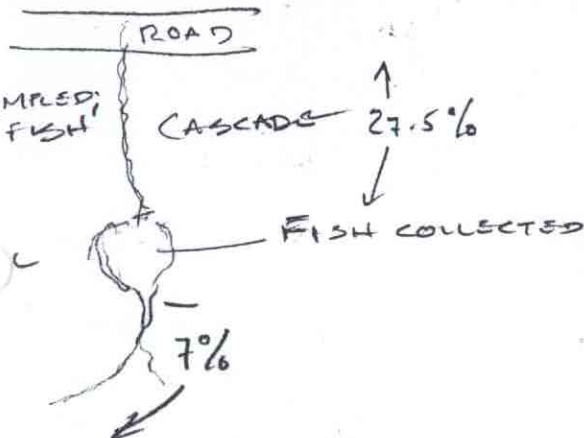 ROAD
MPLED;
FISH
CASCADE 27.5%
FISH COLLECTED
7%